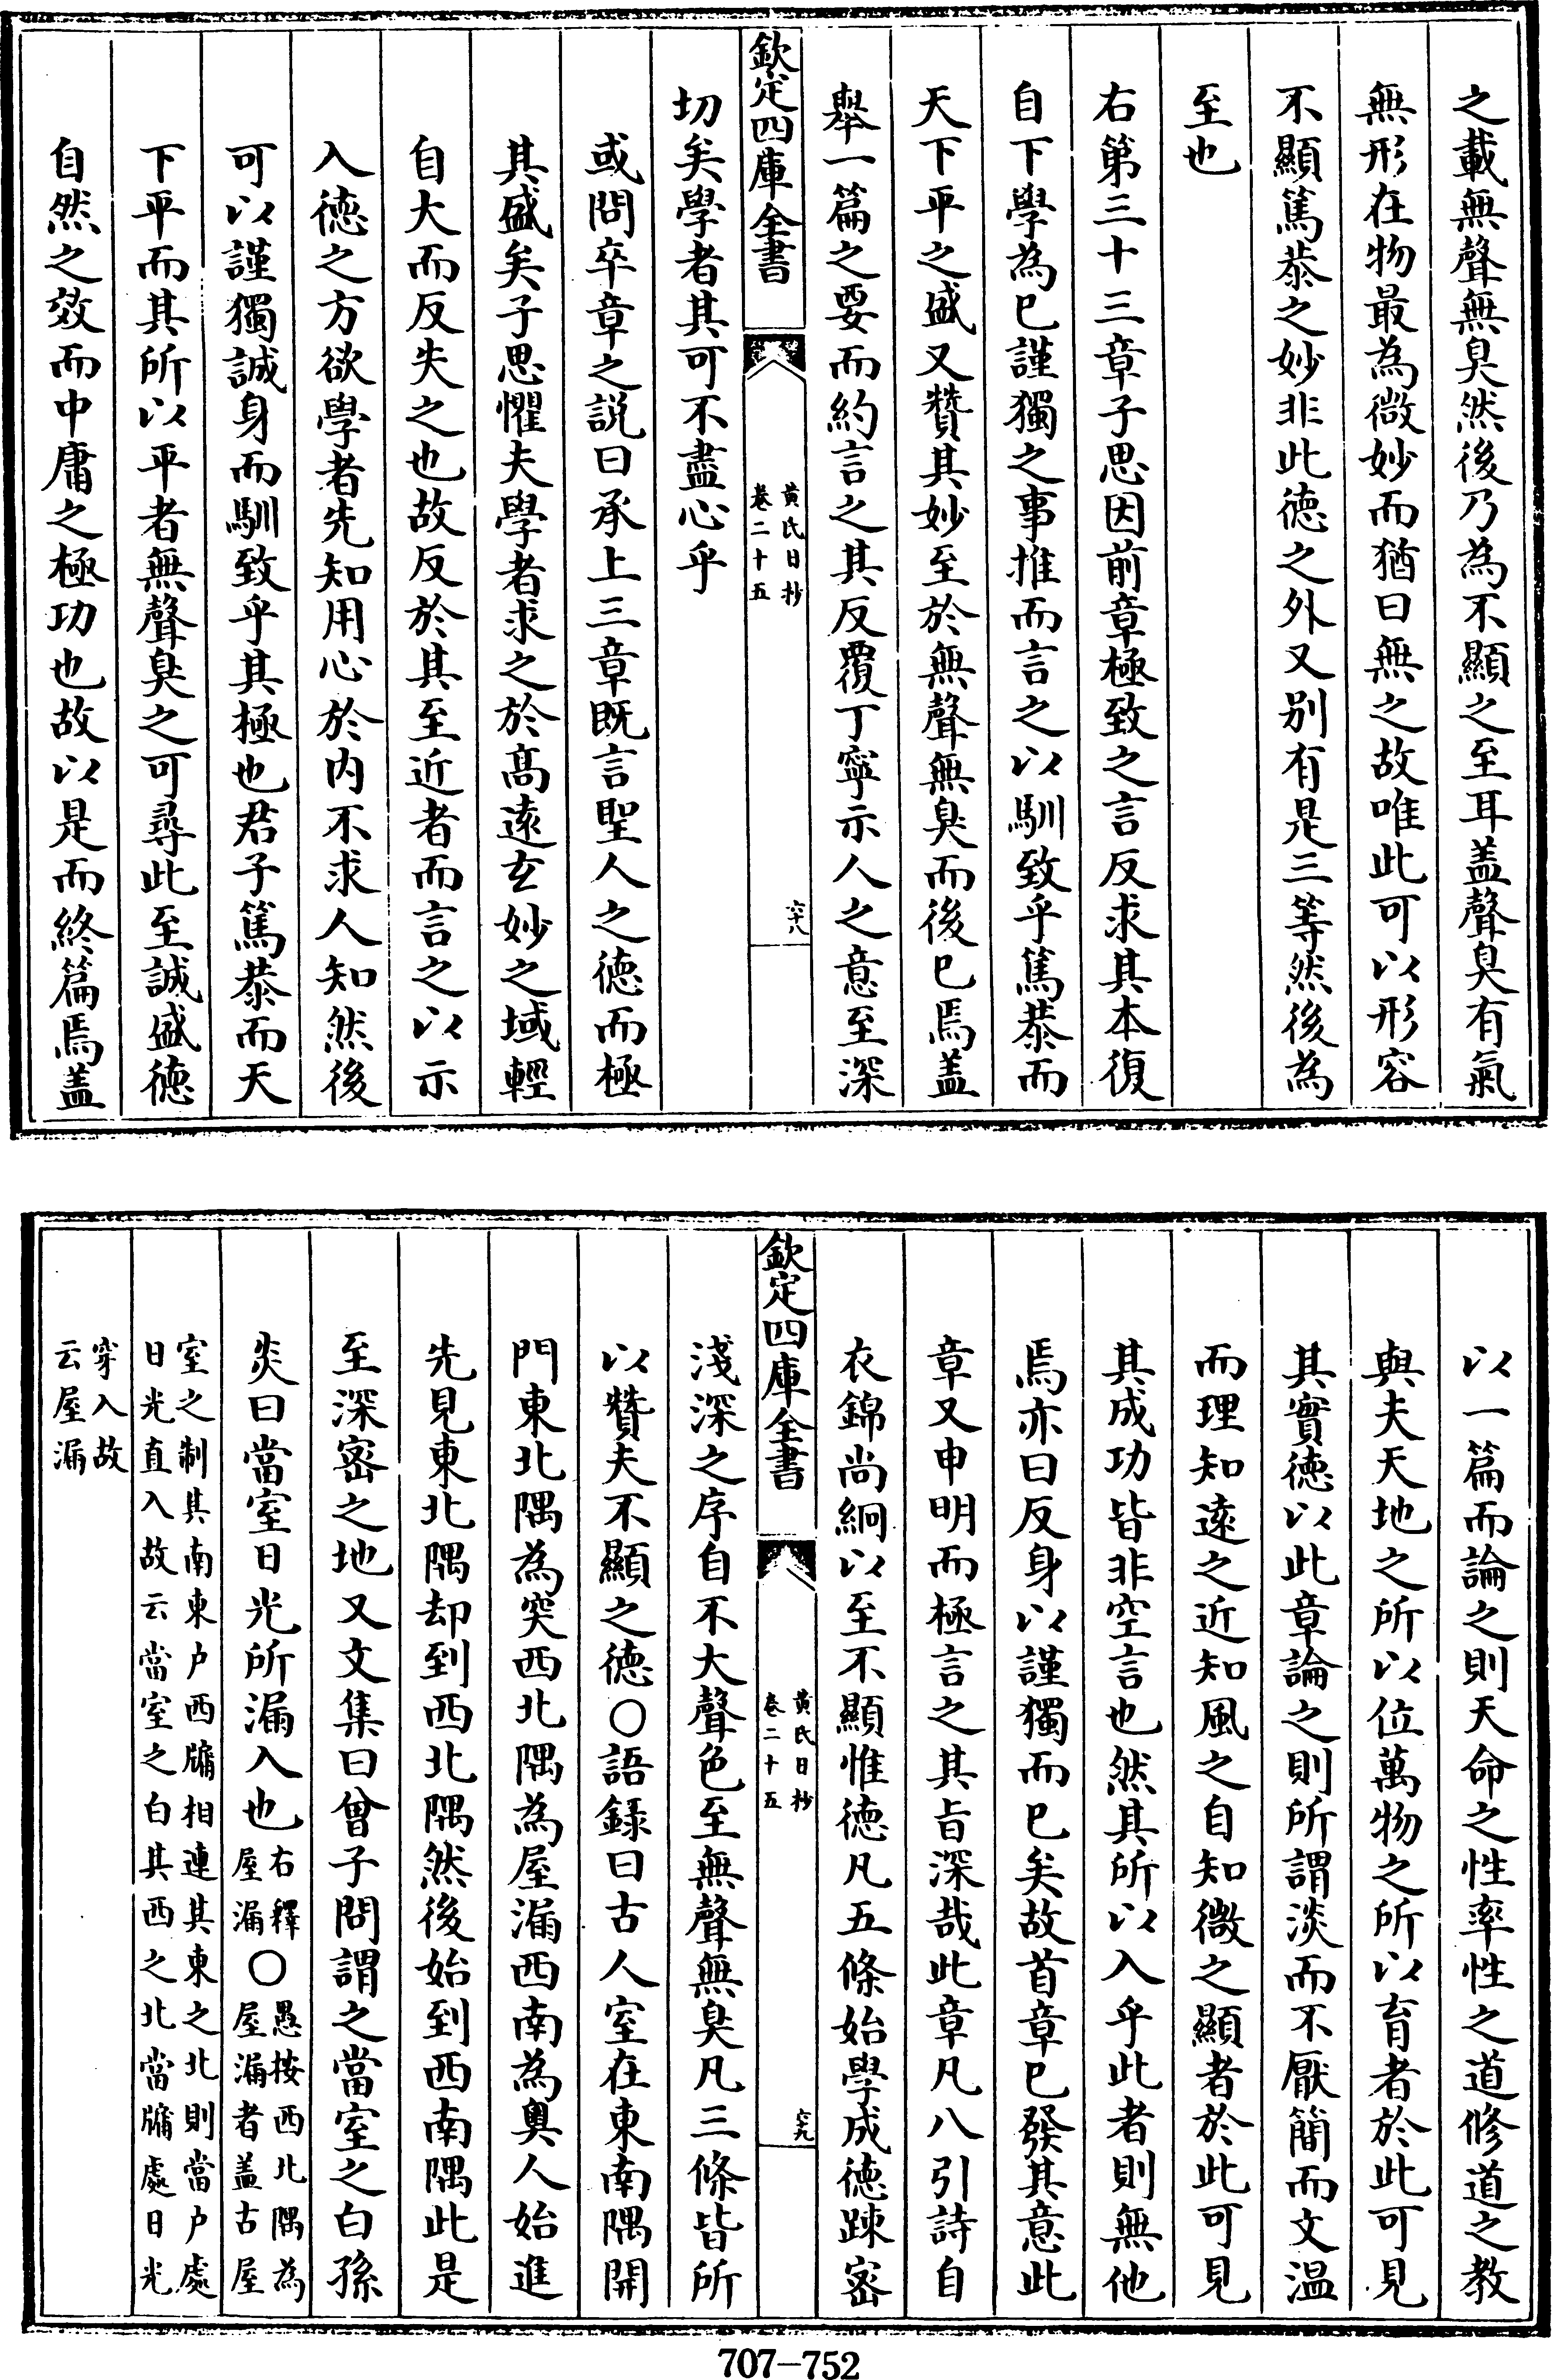 之載無聲無臭然後乃為不顯之至耳盖聲臭有氣
無形在物最為微妙而猶曰無之故唯此可以形容
不顯篤恭之妙非此德之外又别有是三等然後為
至也
右第三十三章子思因前章極致之言反求其本復
自下學為已謹獨之事推而言之以馴致乎篤恭而
天下平之盛又贊其妙至於無聲無臭而後已焉盖
舉一篇之要而約言之其反覆丁寧示人之意至深
欽定四庫全書
黄氏日抄
卷二十五
六十八
切矣學者其可不盡心乎
或問卒章之説曰承上三章既言聖人之德而極
其盛矣子思懼夫學者求之於髙逺玄妙之域輕
自大而反失之也故反於其至近者而言之以示
入德之方欲學者先知用心於内不求人知然後
可以謹獨誠身而馴致乎其極也君子篤恭而天
下平而其所以平者無聲臭之可尋此至誠盛德
自然之效而中庸之極功也故以是而終篇焉盖
以一篇而論之則天命之性率性之道修道之教
與夫天地之所以位萬物之所以育者於此可見
其實德以此章論之則所謂淡而不厭簡而文温
而理知逺之近知風之自知微之顯者於此可見
其成功皆非空言也然其所以入乎此者則無他
焉亦曰反身以謹獨而已矣故首章已發其意此
章又申明而極言之其旨深哉此章凡八引詩自
衣錦尚絅以至不顯惟德凡五條始學成德踈宻
欽定四庫全書
黄氏日抄
卷二十五
六十九
淺深之序自不大聲色至無聲無臭凡三條皆所
以贊夫不顯之德○語録曰古人室在東南隅開
門東北隅為突西北隅為屋漏西南為奥人始進
先見東北隅却到西北隅然後始到西南隅此是
至深宻之地又文集曰曾子問謂之當室之白孫
炎曰當室日光所漏入也右釋屋漏○愚按西北隅為屋漏者盖古屋
室之制其南東户西牖相連其東之北則當户處
日光直入故云當室之白其西之北當牖處日光
穿入故
云屋漏
707—752